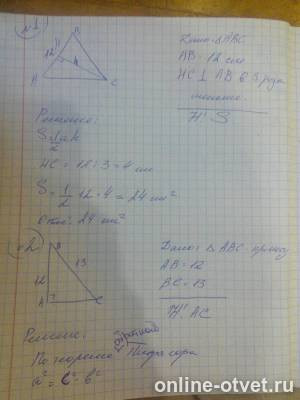 №1
B
12
H
A
C
Дано: ΔABC
AB = 12 см
HC ⊥ AB в 3 раза
меньше.
Н! S
Решение:
HC = 12 : 3 = 4 см
S = 1/2 12 · 4 = 24 см²
Ответ: 24 см²
№2
B
13
12
A
C
Дано: ΔABC прямоуг
AB = 12
BC = 13
Н! AC
Решение:
обратной
По теореме Пифагора
a² = c² - b²
online-otvet.ru